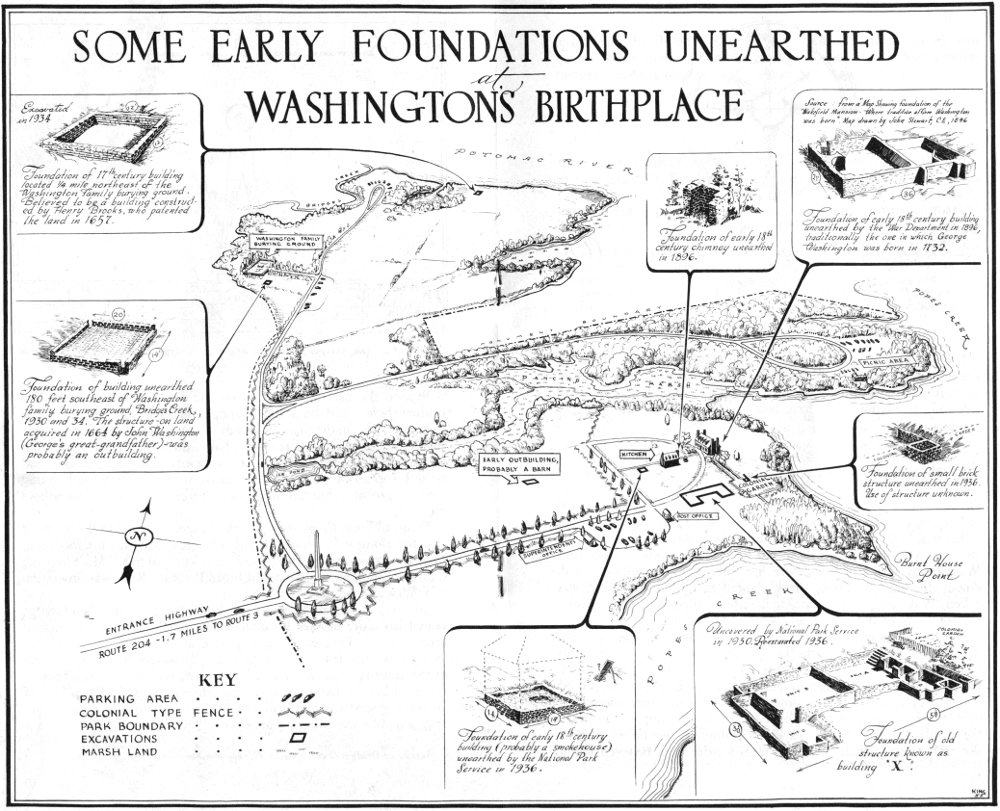 SOME EARLY FOUNDATIONS UNEARTHED
at
WASHINGTONS BIRTHPLACE
Excavated
in 1934
Foundation of 17th century building
located ¼ mile northeast of the
Washington Family burying ground.
Believed to be a building construct-
ed by Henry Brooks, who patented
the land in 1657.
20
19
Foundation of building unearthed
180 feet southeast of Washington
family burying ground, Bridges Creek,
1930 and 34. The structure-on land
acquired in 1664 by John Washington
(George's great-grandfather)-was
probably an outbuilding.
POTOMAC RIVER
BRIDGES CREEK
WASHINGTON FAMILY
BURYING GROUND
Foundation of early 18th
century chimney unearthed
in 1896.
Source: from a "Map Showing foundation of the
Wakefield Mansion - Where tradition affirm Washington
was born" Map drawn by John Stewart, C.E., 1896
Foundation of early 18th century building
unearthed by the War Department in 1896,
traditionally the one in which George
Washington was born in 1732.
POPES CREEK
PICNIC AREA
ICE POND
EARLY OUTBUILDING,
PROBABLY A BARN
KITCHEN
COLONIAL
GARDEN
POST OFFICE
SUPERINTENDENT'S
OFFICE
Foundation of small brick
structure unearthed in 1936.
Use of structure unknown.
Burnt House
Point
POPES CREEK
N
ENTRANCE HIGHWAY
ROUTE 204 -1.7 MILES TO ROUTE 3
KEY
PARKING AREA
COLONIAL TYPE FENCE
PARK BOUNDARY
EXCAVATIONS
MARSH LAND
14
14
Foundation of early 18th century
building (probably a smokehouse)
unearthed by the National Park
Service in 1936.
Uncovered by National Park Service
in 1930. Reexcavated 1936.
COLONIAL
GARDEN
UNIT B
UNIT A
UNIT C
58
Foundation of old
structure known as
building "X".
KING